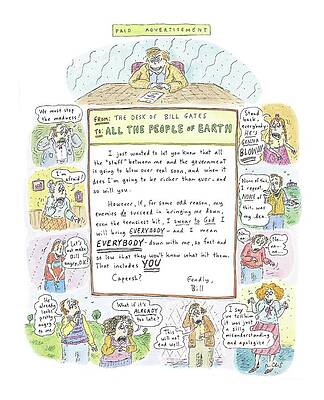 PAID ADVERTISEMENT
FROM: THE DESK OF BILL GATES
TO: ALL THE PEOPLE OF EARTH
I just wanted to let you know that all
the "stuff" between me and the government
is going to blow over real soon, and when it
does I'm going to be richer than ever. and
so will you.
However, if, for some odd reason, my
enemies do succeed in bringing me down,
even the teensiest bit, I swear to God I
will bring EVERYBODY - and I mean
EVERYBODY - down with me, so fast and
so low that they won't know what hit them.
That includes YOU
Capeesh?
Fondly,
Bill
We must stop
the madness!
Stand
back,
everybody!
HE'S
GONNA
BLOW!
I'm afraid!
None of this,
I repeat,
NONE of
this, was
my idea.
Let's
not make
Bill
angry, O.K.?
No...
no...
no...
He already
looks
pretty
angry to
me.
What if it's
ALREADY
too late?
This
will not
end well.
I say
we tell him
it was just
a silly
misunderstanding
and apologize.
R. Chast